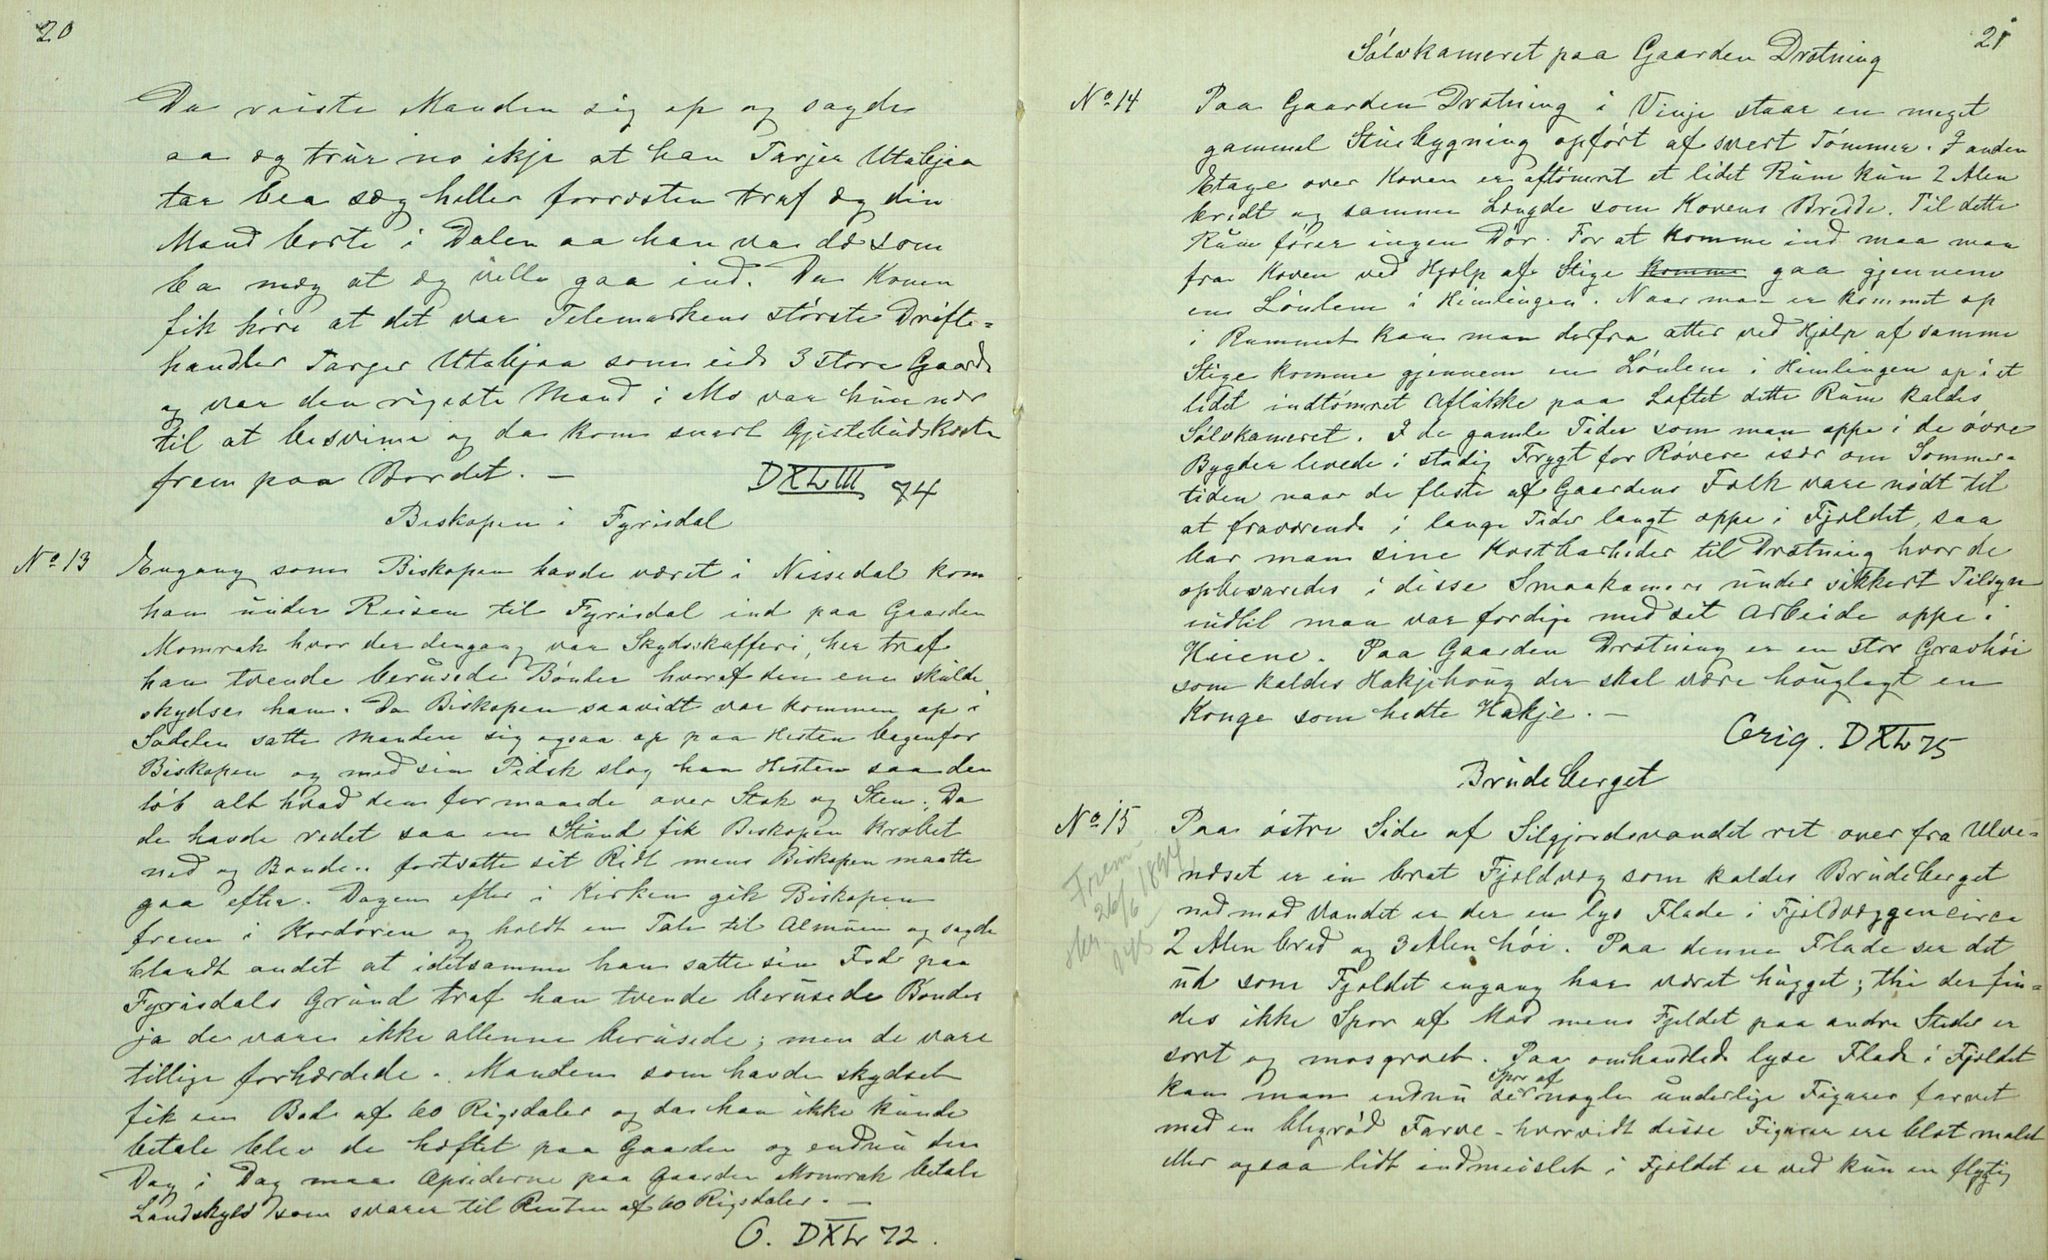 20
Da reiste Manden sig op og sagde
aa eg trur no ikje at han Tarjei Utabjaa
tar bea sæg heller forresten traf eg din
Mand borte i Dalen aa han va dæ som
ba mæg at eg ville gaa ind. Da Konen
fik høre at det var Telemarkens største Drifte-
handler Tarjer Utabjaa som eide 3 store Gaarde
og var den rigeste Mand i Mo var hun nær
til at besvime og da kom snart Gjestebudskosten
frem paa Bordet. —
DXLIII 74
Biskopen i Fyrisdal
No 13 Engang som Biskopen havde været i Nissedal kom
han under Reisen til Fyrisdal ind paa Gaarden
Momrak hvor der dengang var Skydsskafferi, her traf
han tvende berusede Bønder hvoraf den ene skulde
skydse ham. Da Biskopen saavidt var kommen op i
Sadelen satte Manden sig ogsaa op paa Hesten bagenfor
Biskopen og med sin Pidsk slog han Hesten saa den
løb alt hvad den formaaede over Stok og Sten. Da
de havde redet saa en Stund fik Biskopen krøbet
ned og Bonden fortsatte sit Ridt mens Biskopen maatte
gaa efter. Dagen efter i Kirken gik Biskopen
frem i Kordøren og holdt en Tale til Almuen og sagde
blandt andet at idetsamme han satte sin Fod paa
Fyrisdals Grund traf han tvende berusede Bønder
ja de vare ikke allenne berusede; men de vare
tillige forhærdede. Manden som havde skydset
fik en Bod af 60 Rigsdaler og da han ikke kunde
betale blev de hæftet paa Gaarden og endnu den
Dag i Dag maa Opsiderne paa Gaarden Momrak betale
Landskyld som svarer til Renten af 60 Rigsdaler. —
O. DXL 72.
21
Sølvkameret paa Gaarden Drotning
No 14 Paa Gaarden Drotning i Vinje staar en meget
gammel Stuebygning opført af svert Tømmer. I anden
Etage over Koven er aftømret et lidet Rum kun 2 Alen
bridt og samme Længde som Kovens Bredde. Til dette
Rum fører ingen Dør. For at komme ind maa man
fra Koven ved Hjelp af Stige komme gaa gjennem
en Lønlem i Himlingen. Naar man er kommet op
i Rummet kan man derfra atter ved Hjelp af samme
Stige komme gjennem en Lønlem i Himlingen op i et
lidet indtømret Aflukke paa Loftet dette Rum kaldes
Sølvkameret. I de gamle Tider som man oppe i de øvre
Bygder levede i stadig Frygt for Røvere især om Sommer-
tiden naar de fleste af Gaardens Folk vare nødt til
at fraværende i lange Tider langt oppe i Fjeldet, saa
bar man sine Kostbarheder til Drotning hvor de
opbevaredes i disse Smaakamere under sikkert Tilsyn
indtil man var færdige med sit Arbeide oppe i
Heiene. Paa Gaarden Drotning er en stor Gravhøi
som kaldes Hakjehoug der skal være houglagt en
Konge som hedte Hakje. —
Orig. DXL 75
Brudeberget
No 15 Paa østre Side af Siljordsvandet ret over fra Ulve-
næset er en brat Fjeldvæg som kaldes Brudeberget
ned mod Vandet er der en lys Flade i Fjeldvæggen circa
2 Alen bred og 3 Alen høi. Paa denne Flade ser det
ud som Fjeldet engang har været hugget; thi der fin-
des ikke Spor af Mos mens Fjeldet paa andre Steder er
sort og mosgroet. Paa omhandlede lyse Flade i Fjeldet
kan man endnu se Spor af nogle underlige Figurer farvet
med en blegrød Farve - hvorvidt disse Figurer ere blot malet
eller ogsaa lidt indmeislet i Fjeldet er ved kun en flygtig
Frem
26/6 1894